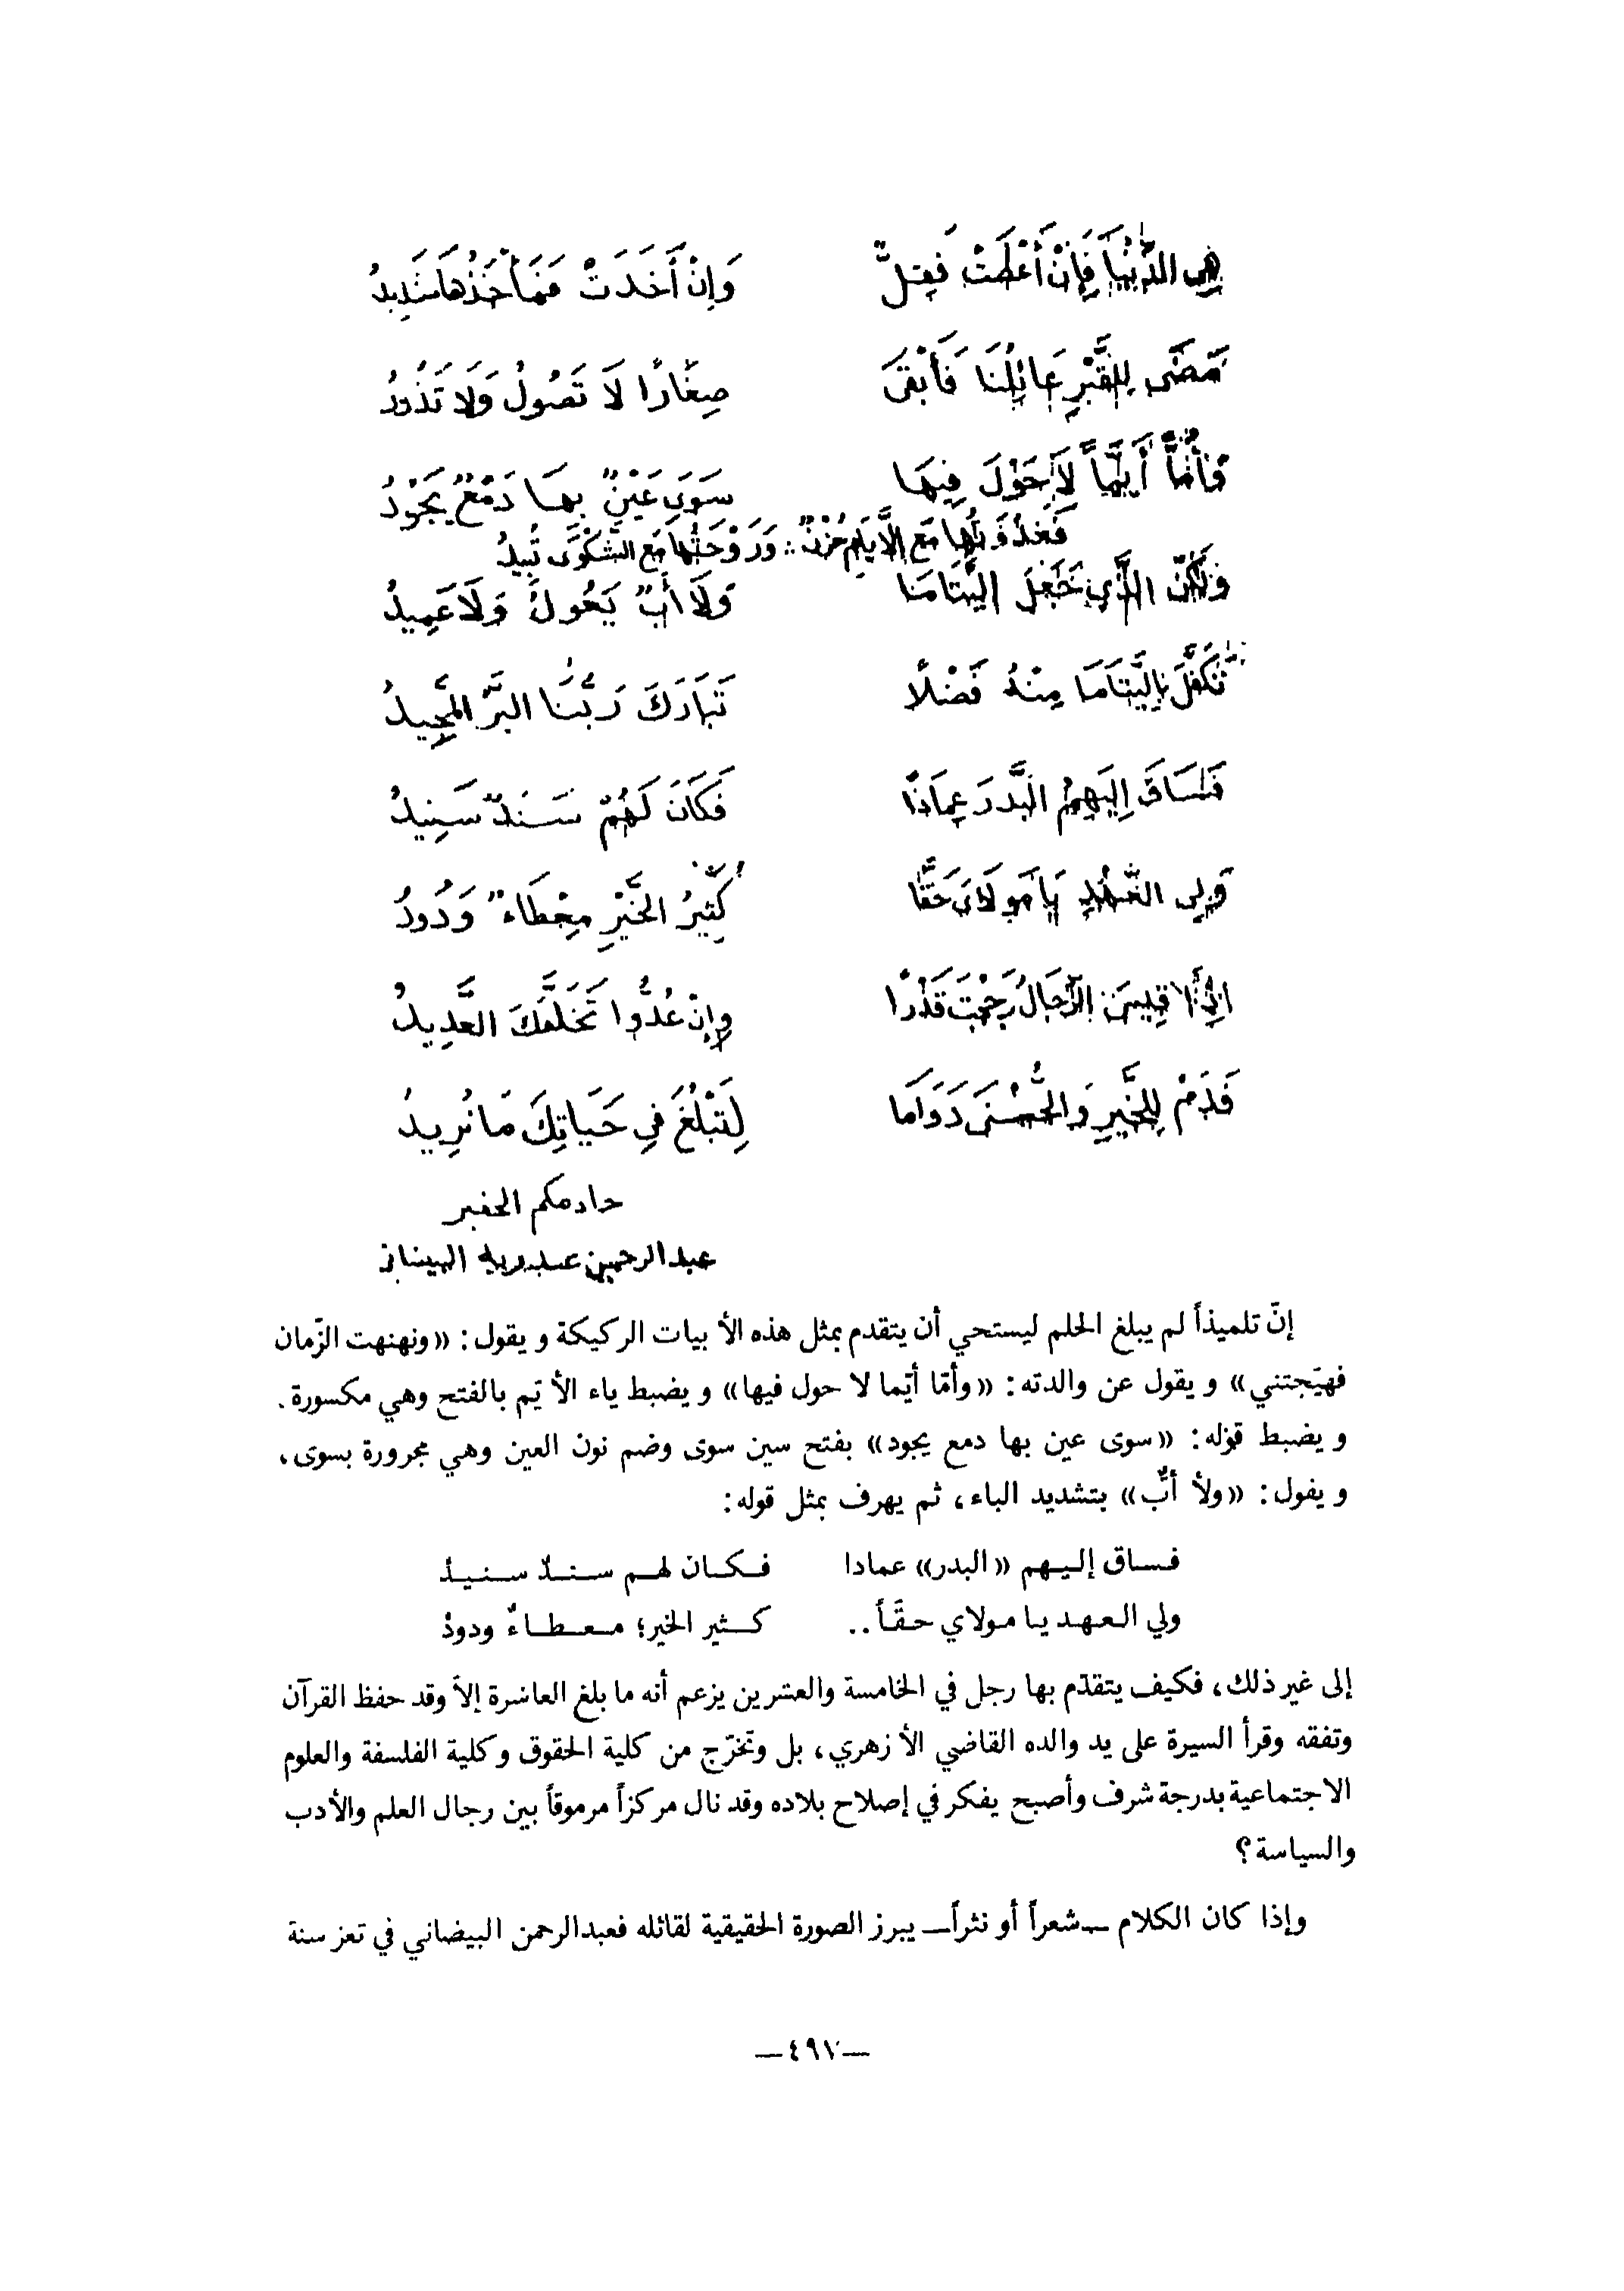 هِيَ الدُّنْيَا فَإِنْ أَعْطَتْ فَقِلٌّ وَإِنْ أَخَذَتْ فَمَأْخَذُهَا شَدِيدُ
مَضَى لِلقَبْرِ عَائِلُنَا فَأَبْقَى صِغَارًا لَا تَصُولُ وَلَا تَذُودُ
وَأُمًّا أَيَّمًا لَا حَوْلَ فِيهَا سَوَى عَيْنٌ بِهَا دَمْعٌ يَجُودُ
فَغُدْوَتُهَا مَعَ الْأَيَّامِ حُزْنٌ :: وَرَوْحَتُهَا مَعَ الشَّكْوَى تَبِيدُ
وَلَكِنَّ الَّذِي جَعَلَ الْيَتَامَى وَلَا أَبٌّ يَعُولُ وَلَا عَمِيدُ
تَكَفَّلَ بِالْيَتَامَى مِنْهُ فَضْلًا تَبَارَكَ رَبُّنَا البَرُّ المَجِيدُ
فَسَاقَ إِلَيهِمُ البَدرَ عِمَادًا فَكَانَ لَهُمْ سَنَدٌ سَنِيدُ
وَلِي العَهْدِ يَا مَولَايَ حَقًّا كَثِيرُ الخَيْرِ مِعْطَاءٌ وَدُودُ
إِذَا قِيسَ الرِّجَالُ رَجَحْتَ قَدْرًا وَإِنْ عُدُّوا تَخَلَّفَكَ العَدِيدُ
فَدُمْ لِلْخَيرِ وَالحُسْنَى دَوَامَا لِتَبْلُغَ فِي حَيَاتِكَ مَا تُرِيدُ
خادمكم الحقير
عبد الرحمن عبد ربه البيضاني
إنّ تلميذاً لم يبلغ الحلم ليستحي أن يتقدم بمثل هذه الأبيات الركيكة ويقول: «ونهنهت الزّمان
فهيّجتني» ويقول عن والدته: «وأمّا أيّما لا حول فيها» ويضبط ياء الأيّم بالفتح وهي مكسورة.
ويضبط قوله: «سوى عين بها دمع يجود» بفتح سين سوى وضم نون العين وهي مجرورة بسوى،
ويقول: «ولأ أبٌّ» بتشديد الباء، ثم يهرف بمثل قوله:
فساق إليهم «البدر» عمادا فكان لهم سندٌ سنيدُ
ولي العهد يا مولاي حقّاً.. كثير الخير؛ معطاءٌ ودودُ
إلى غير ذلك، فكيف يتقدّم بها رجل في الخامسة والعشرين يزعم أنه ما بلغ العاشرة إلاّ وقد حفظ القرآن
وتفقه وقرأ السيرة على يد والده القاضي الأزهري، بل وتخرّج من كلية الحقوق وكلية الفلسفة والعلوم
الاجتماعية بدرجة شرف وأصبح يفكر في إصلاح بلاده وقد نال مركزاً مرموقاً بين رجال العلم والأدب
والسياسة؟
وإذا كان الكلام —شعراً أو نثراً— يبرز الصورة الحقيقية لقائله فعبدالرحمن البيضاني في تعز سنة
—٤٩٧—